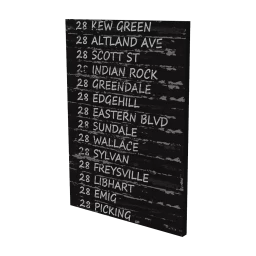 28 KEW GREEN
28 ALTLAND AVE
28 SCOTT ST
28 INDIAN ROCK
28 GREENDALE
28 EDGEHILL
28 EASTERN BLVD
28 SUNDALE
28 WALLACE
28 SYLVAN
28 FREYSVILLE
28 LIBHART
28 EMIG
28 PICKING